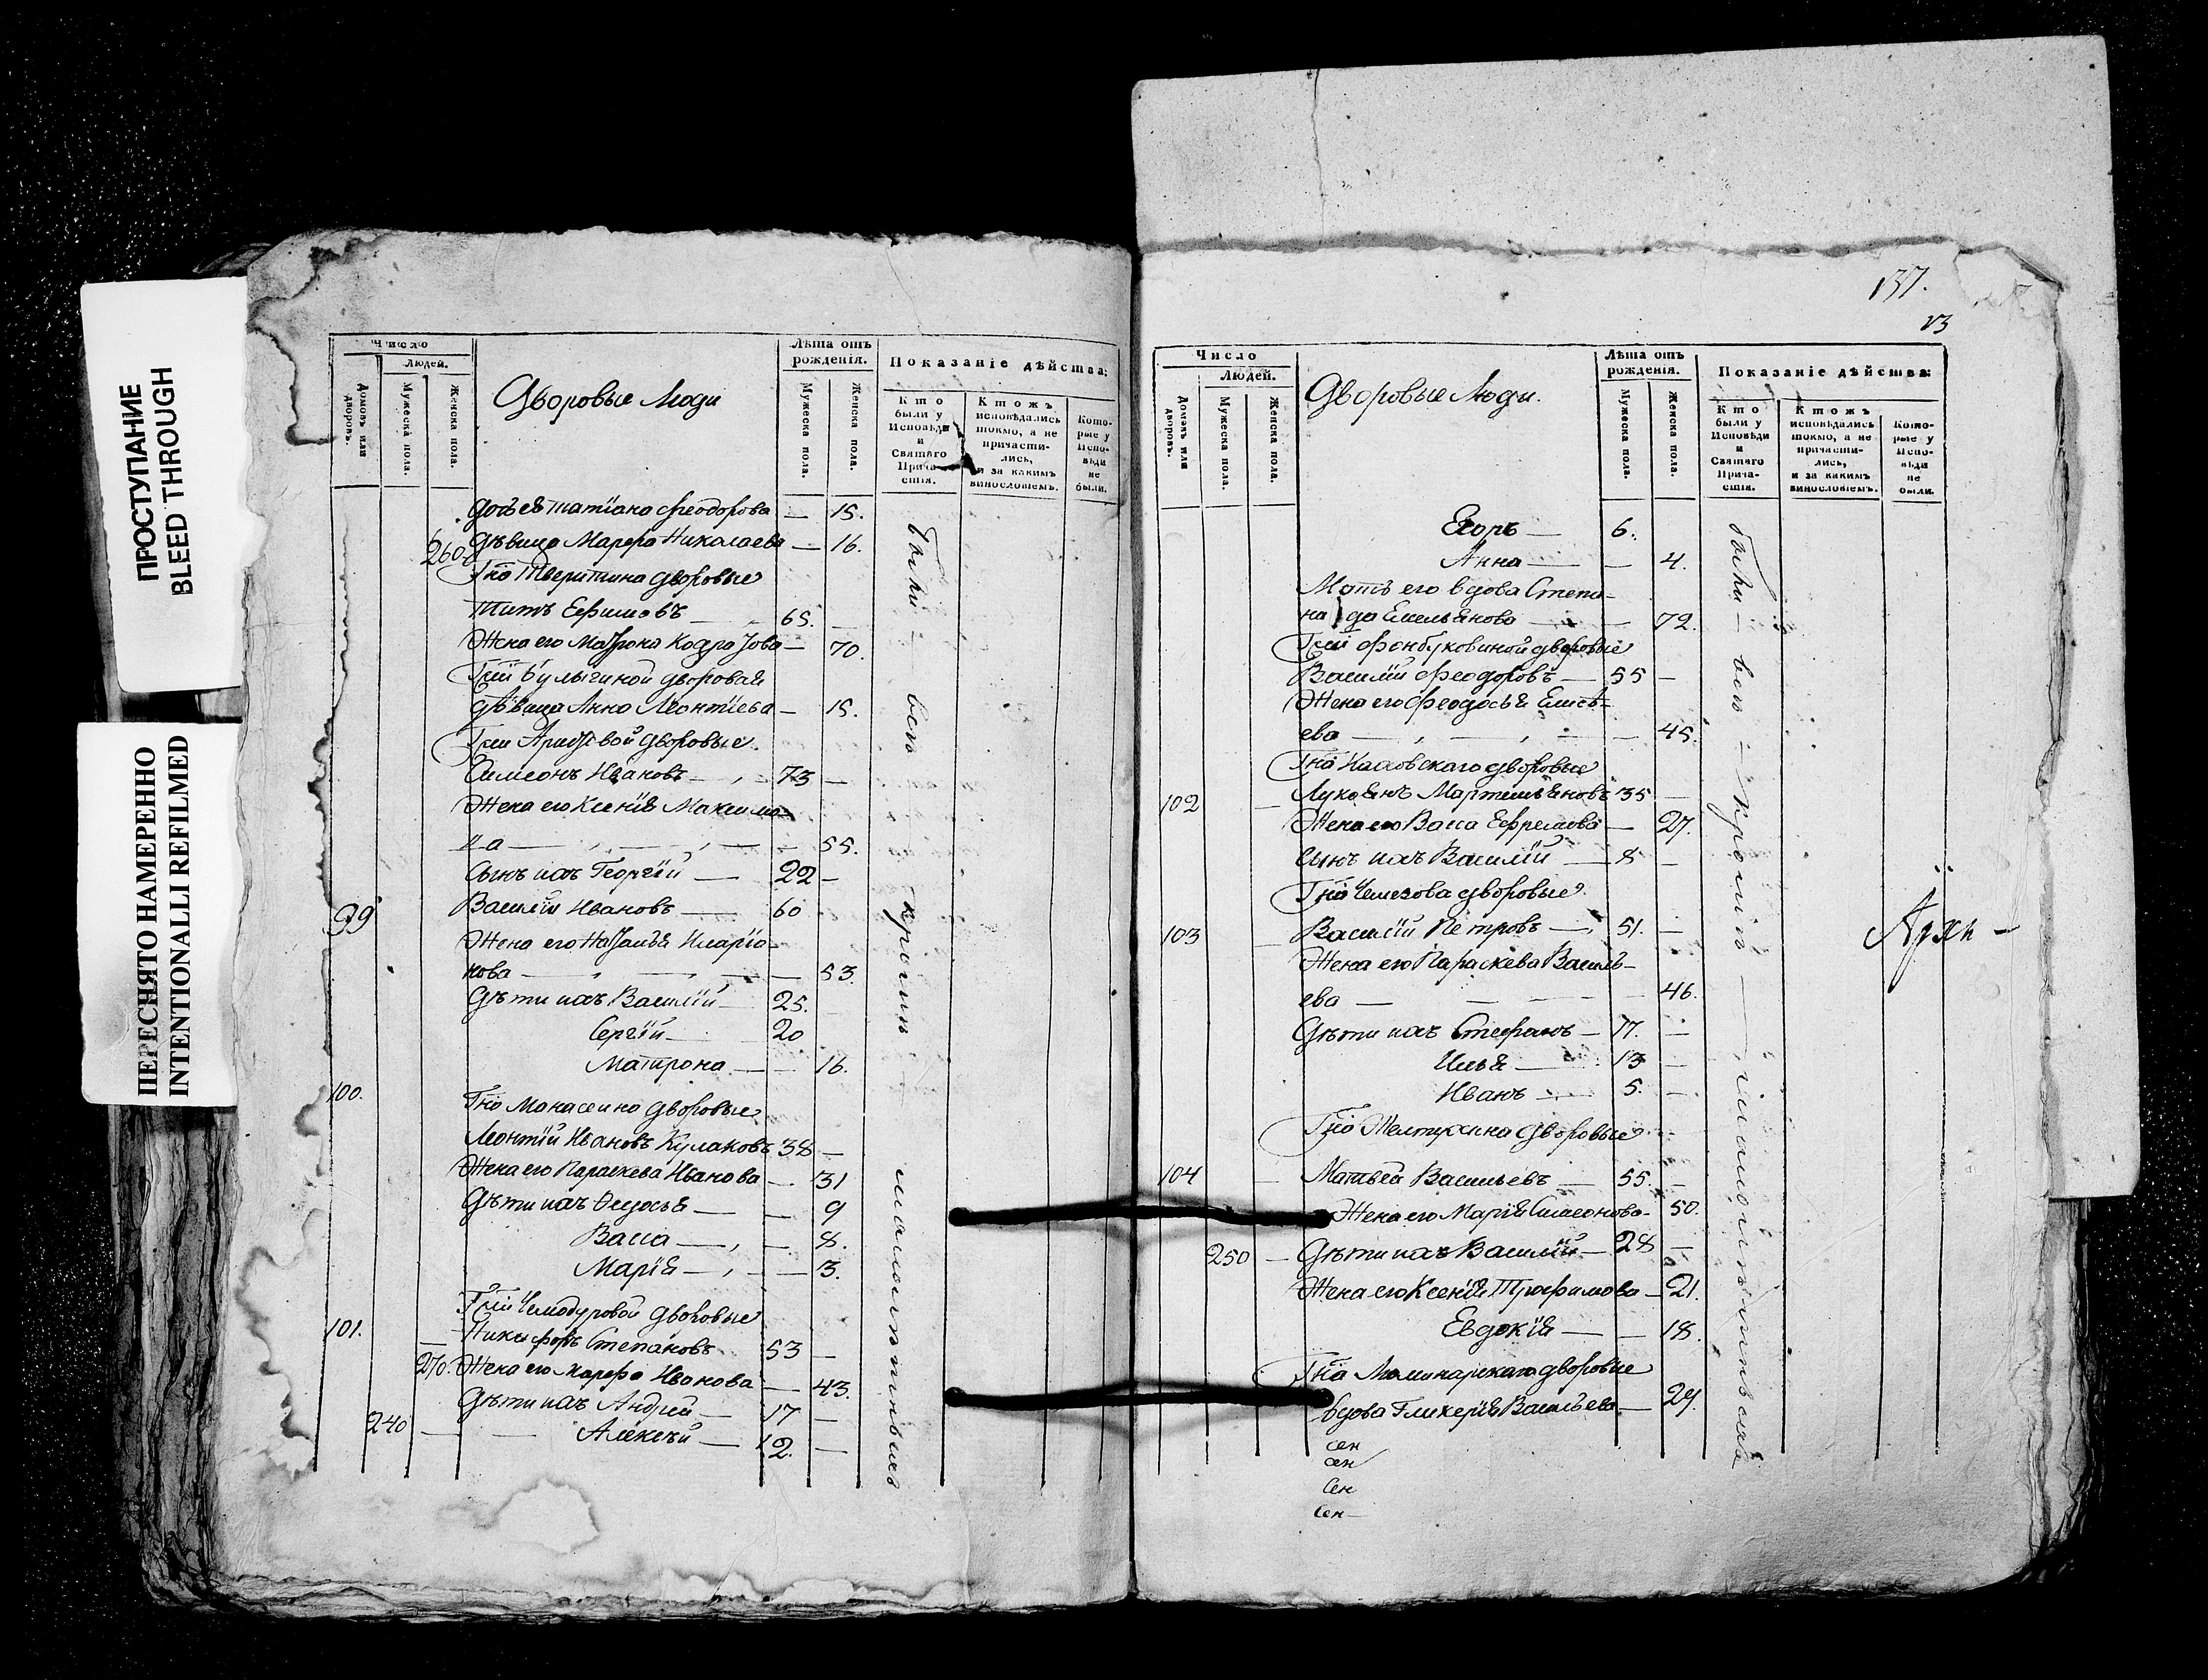 ПРОСТУПАНИЕ
BLEED THROUGH
ПЕРЕСНЯТО НАМЕРЕННО
INTENTIONALLI REFILMED
Число
Людей.
Домовъ или дворовъ.
Мужеска пола.
Женска пола.
Дворовые Люди
Лѣта отъ рожденія.
Мужеска пола.
Женска пола.
Показаніе дѣйства:
Кто были у Исповѣди и Святаго Причастія.
Ктожъ исповѣдались токмо, а не причастились, и за какимъ винословіемъ.
Которые у Исповѣди не были.
Дочь ея Татіана Феодорова — 15.
260 Дѣвица Марфа Николаева — 16.
Гна Тверитина дворовые
Титъ Ефимовъ — 65. —
Жена его Матрона — 70.
Гжи Булыгиной дворовая
Дѣвица Анна Леонтіева — 15.
Гжи дворовые
Симеонъ Ивановъ — 73 —
Жена его Ксенія Максимо-
на — 55.
Сынъ ихъ Георгій — 22 —
99 Василій Ивановъ — 60
Жена его Наталья Иларіо-
нова — 53.
Дѣти ихъ Василій 25.
Сергій — 20
Матрона — 16.
100.
Гна Манасеина дворовые
Леонтій Ивановъ Кулаковъ 38 —
Жена его Параскева Иванова — 31
Дѣти ихъ Федосья — 9
Васса — 8.
Марія — 3.
Гжи Чемодуровой дворовые
101. Никифоръ Степановъ 53 —
270. Жена его Марфа Иванова — 43.
Дѣти ихъ Андрей — 17 —
240 — Алексѣй — 12. —
были — вси
137.
13
Число
Людей.
Домовъ или дворовъ.
Мужеска пола.
Женска пола.
Дворовые Люди.
Лѣта отъ рожденія.
Мужеска пола.
Женска пола.
Показаніе дѣйства:
Кто были у Исповѣди и Святаго Причастія.
Ктожъ исповѣдались токмо, а не причастились, и за какимъ винословіемъ.
Которые у Исповѣди не были.
Егоръ — 6.
Анна — 4.
Мать его вдова Степа-
нида Емельянова — 72.
Гжи Фонбуковиной дворовые
Василій Феодоровъ — 55 —
Жена его Феодосья Елисѣ-
ева — 45.
Гна дворовые
102 — Лукьянъ Мартемьяновъ 35 —
Жена его Васса Ефремова — 27.
Сынъ ихъ Василій — 8 —
Гна Чемезова дворовые
103 — Василій Петровъ — 51. —
Жена его Параскева Василь-
ева — 46.
Дѣти ихъ Стефанъ — 17. —
Илья — 13 —
Иванъ — 5. —
Гна Желтухина дворовые
104 — Матвей Васильевъ — 55. —
Жена его Марія Симеонова — 50.
250 — Дѣти ихъ Василій — 28 —
Жена его Ксенія Трофимова — 21.
Евдокія — 18.
Гна дворовые
вдова Гликерія Васильева — 29.
сен
сен
Сен
Сен —
были — вси
Архи —